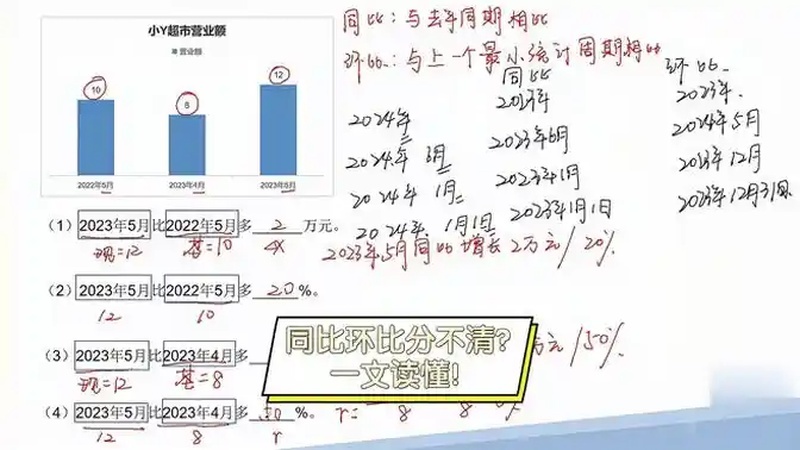 小Y超市营业额
营业额
10
8
12
2022年5月
2023年4月
2023年5月
同比：与去年同期相比
环比：与上一个最小统计周期相比
同比
环比
2024年
2023年
2023年
2024年6月
2023年6月
2024年5月
2024年1月
2023年1月
2023年12月
2024年1月1日
2023年1月1日
2023年12月31日
（1）2023年5月比2022年5月多 2 万元。
现=12
基=10
2023年5月同比增长2万元/20%
（2）2023年5月比2022年5月多 20 %。
12
10
（3）2023年5月比2023年4月多
现=12
基=8
万元/50%
（4）2023年5月比2023年4月多 50 %。
12
8
r
r=
8
8
同比环比分不清?
一文读懂!